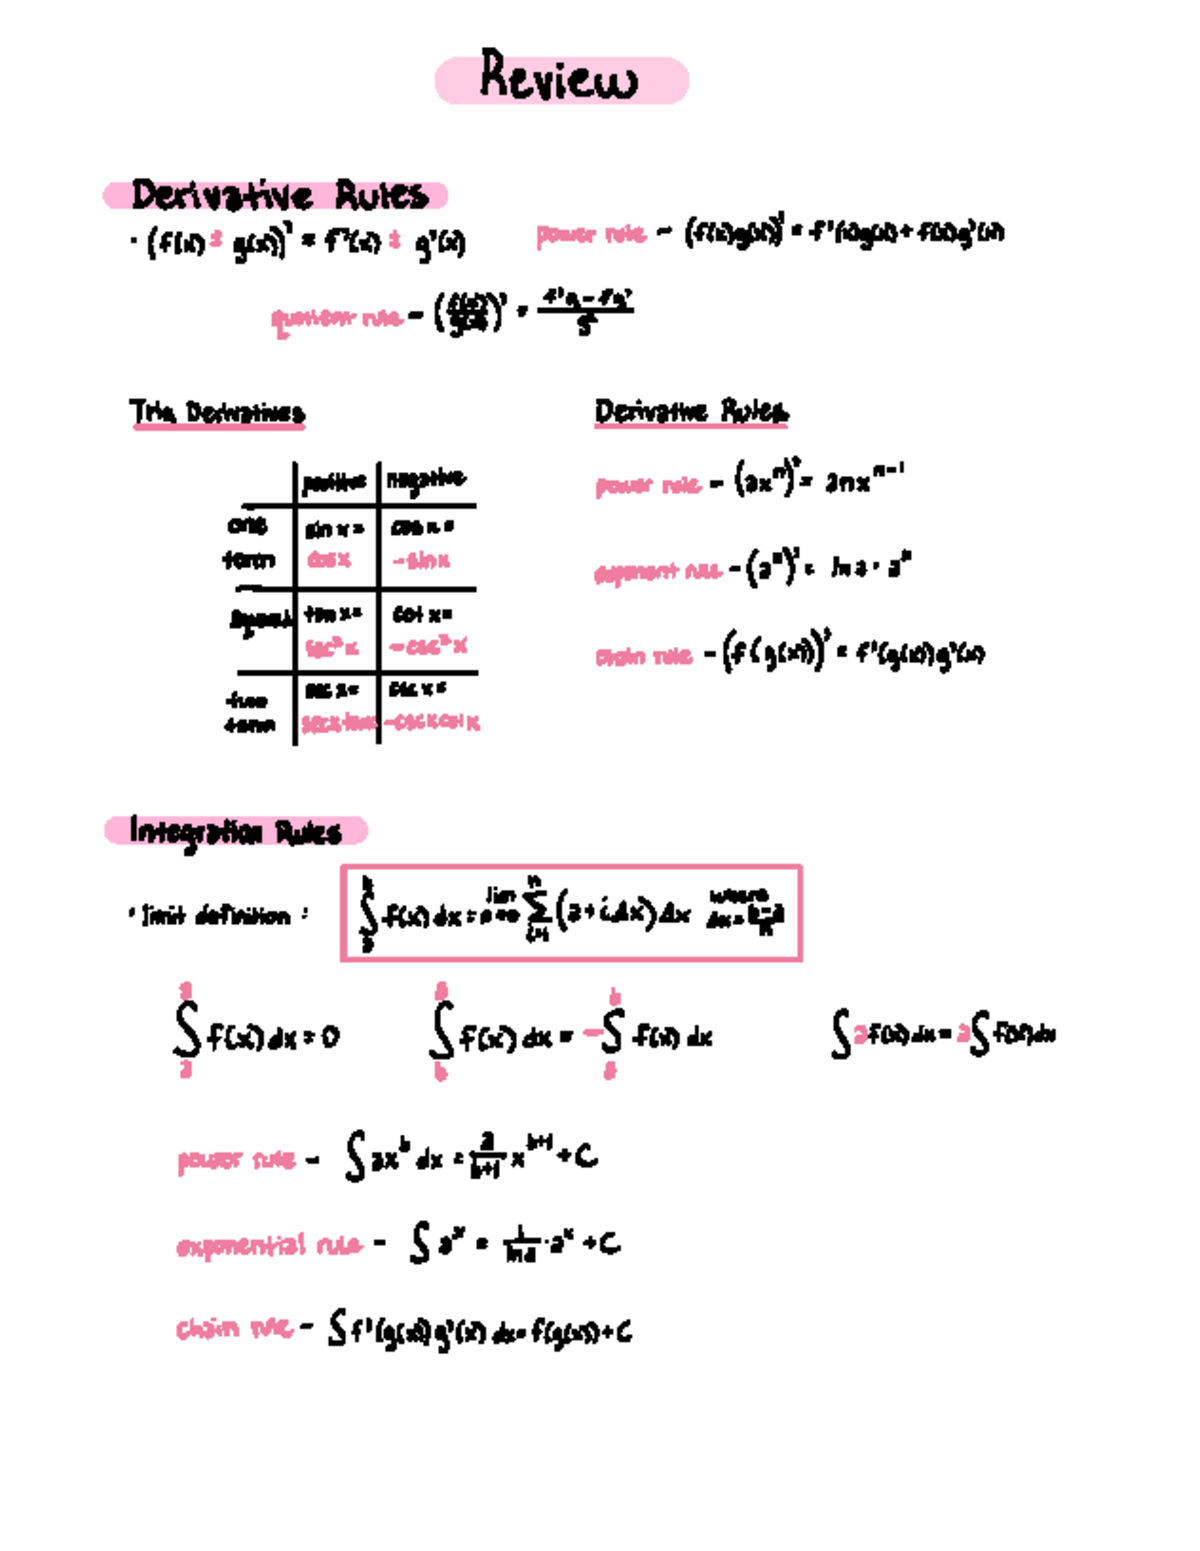 Review
Derivative Rules
· (f(x) ± g(x))' = f'(x) ± g'(x)
power rule - (f(x)g(x))' = f'(x)g(x) + f(x)g'(x)
quotient rule - (f(x)/g(x))' = (f'g - fg')/g²
Trig Derivatives
Derivative Rules
positive negative
one term
sin x = cos x
cos x = -sin x
tan x = sec²x
cot x = -csc²x
two term
sec x = secxtanx
csc x = -cscxcotx
power rule - (ax^n)' = anx^(n-1)
exponent rule - (a^x)' = ln a · a^x
chain rule - (f(g(x)))' = f'(g(x))g'(x)
Integration Rules
· limit definition : ∫ f(x) dx = lim n→∞ Σ i=1 n (a + iΔx)Δx where dx = (b-a)/n
∫_a^a f(x) dx = 0
∫_b^a f(x) dx = -∫_a^b f(x) dx
∫ af(x) dx = a∫ f(x) dx
power rule - ∫ ax^b dx = a/(b+1) x^(b+1) + C
exponential rule - ∫ a^x = 1/(ln a) · a^x + C
chain rule - ∫ f'(g(x)) g'(x) dx = f(g(x)) + C